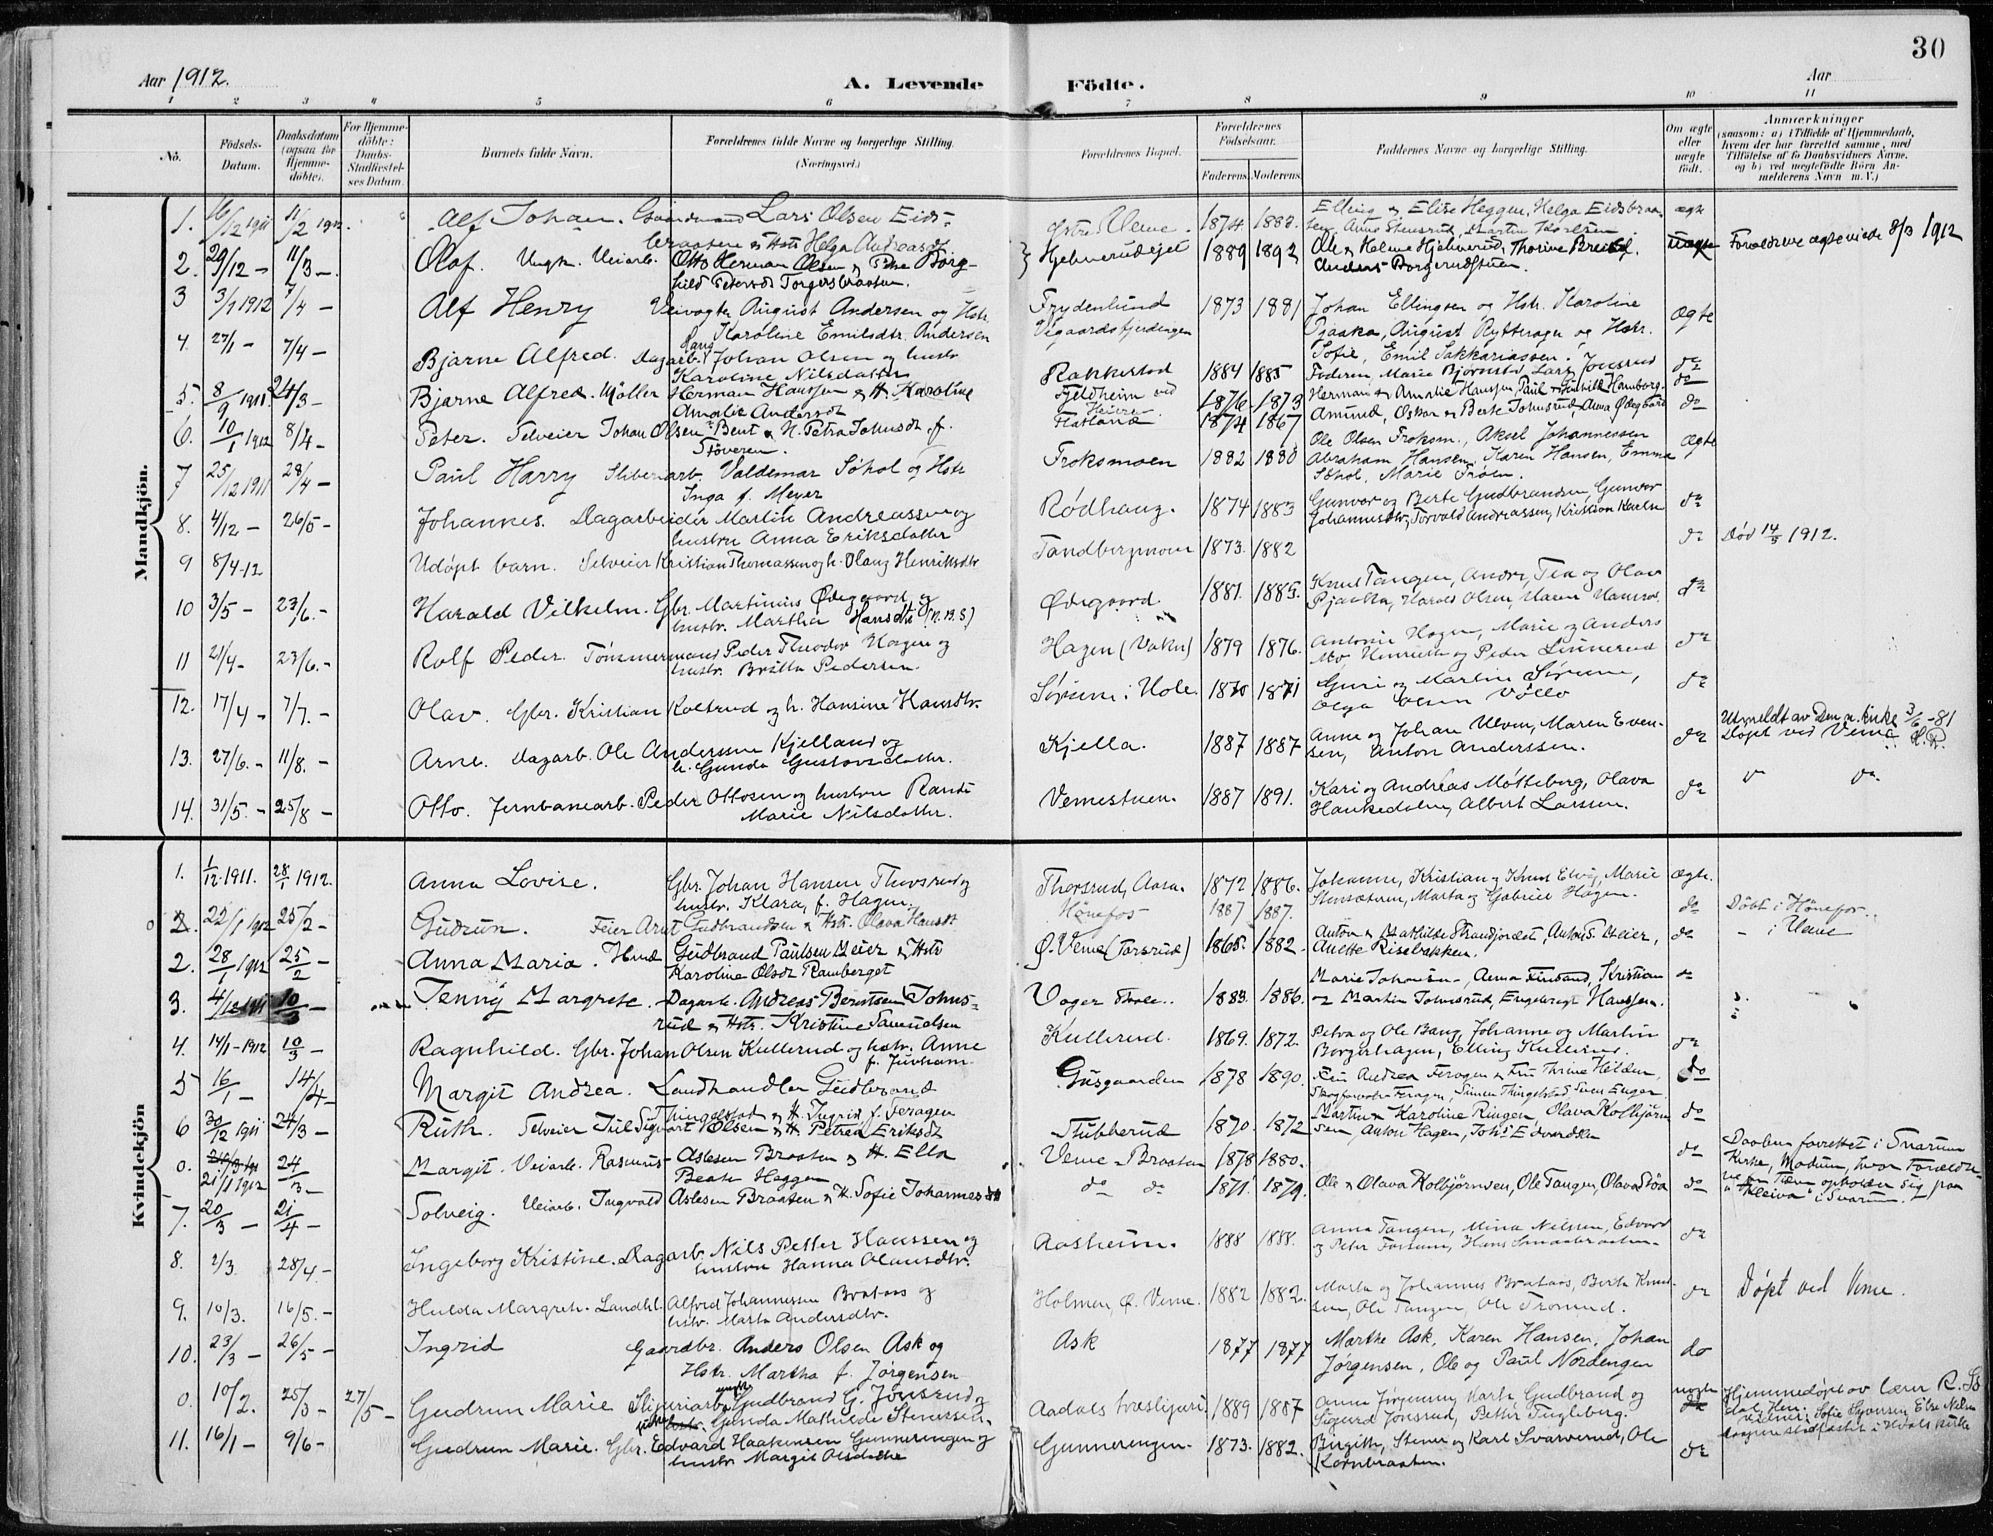 30
Aar 1912. A. Levende Födte. Aar
1 2 3 4 5 6 7 8 9 10 11
No. Födsels-Datum. Daabsdatum (ogsaa for Hjemme-döbte). For Hjemme-döbte: Daabs-Stadfæstel-ses Datum. Barnets fulde Navn. Forældrenes fulde Navne og borgerlige Stilling. (Næringsvei.) Forældrenes Bopæl. Forældrenes Födselsaar. Faderens. Moderens. Faddernes Navne og borgerlige Stilling. Om ægte eller uægte födt. Anmærkninger (saasom: a) i Tilfælde af Hjemmedaab, hvem der har forrettet samme, med Tilföielse af to Daabsvidners Navne, og b) ved uegtefödte Börn An-melderens Navn m. V.)
Mandkjön.
1. 16/12 1911 11/2 1912. Alf Johan. Gaardmand Lars Olsen Eids-braaten & Hstr Helga Andreasdt. Østre Veme. 1874 1882. Elling & Elise Heggen, Helga Eidsbraa-ten, Anne Stensrud, Martin Karlsen ægte
2. 29/12 — 11/3 —. Olof. Ungk. Veiarb. Otto Herman Olsen & Pike Borg-hild Petersdt Torgersbraaten. Hjelmerudejet 1889 1892 Ole & Helene Hjelmerud, Thorine Anders Borgerudstuen. uægte Forældrene ægteviede 8/3 1912
3 3/1 1912 7/4 — Alf Henry Veivogter August Andersen og Hstr. Karoline Emilsdtr. Andersen Frydenlund Vegaardsfjerdingen 1873 1881 Johan Ellingsen og Hstr. Karoline Opsaker, August Rytteragen og Hstr. Sofie, Emil Sakkariassen. ægte
4. 27/1 — 7/4 — Bjarne Alfred. Dagarb. Johan Olsen og hustr Karoline Nilsdatter Rakkestad 1884 1885 Faderen, Marie Bjørnstad, Lars Jonsrud do
5. 8/9 1911. 24/3 — Bjarne Alfred. Møller Herman Hansen & H. Karoline Amalie Andersdt Fjeldheim ved Heieren 1876 1873 Herman & Amalie Hansen, Paul & Gunhild Hamborg. do
6. 10/1 1912 8/4 — Peter. Selveier Johan Olsen Bent & H. Petra Johnsdt f. Støveren. Flatland 1874 1867 Amund, Oskar & Berte Johnsrud, Anna Ødegaard do
7 25/12 1911 28/4 — Paul Harry Sliberiarb. Valdemar Søhol og Hstr Inga f. Meyer Froksmoen 1882 1880 Ole Olsen Froksm., Aksel Johannessen Abraham Hansen, Karen Hansen, Emma Søhol, Marie Frøen. ægte
8. 4/12 — 26/5 — Johannes. Dagarbeider Martin Andreassen og hustru Anna Eriksdatter Rødhaug. 1874 1883 Gunvor og Berte Gudbrandsen, Gunvor Johannesdtr, Torvald Andreassen, Kristian Karlsen do
9 8/4-12 Udøpt barn. Selveier Kristian Thomassen og h. Olaug Henriksdtr Tandbergmoen 1873. 1882 do Død 14/5 1912.
10 3/5 — 23/6. — Harald Vilhelm. Gbr. Martinius Ødegaard, og hustr. Martha Hansdtr (N.B.S) Ødegaard. 1881. 1885. Knut Tangen, Andr. Tea og Olav Pjaaka, Harald Olsen, Maren Hansen. do
11 21/4 — 23/6. — Rolf Peder. Tømmermand Peder Theodor Hagen og hustr. Britta Pedersen. Hagen (Vaker) 1879 1876. Antonie Hagen, Marie og Anders Mo Henriette og Peder Linnerud do
12. 17/4 — 7/7. — Olav. Gbr. Kristian Roltrud og h. Hansine Hansdtr. Sørum i Hole. 1870 1871 Guri og Martin Sørum, Olga Olsen Vøllo do
13. 27/6. — 11/8. — Arne. Dagarb. Ole Andersen Kjelland og h. Gunda Gustavsdatter. Kjella. 1887 1887 Anne og Johan Ulven, Maren Even-sen, Anton Anderssen. do Utmeldt av Den n. kirke 3/6 -81 Døpt ved Veme
14. 31/5. — 25/8 — Otto. Jernbanearb. Peder Ottosen og hustru Randi Marie Nilsdatter. Vemestuen. 1887 1891. Kari og Andreas Møtteberg, Olava Haukedalen, Albert Larsen. do
Kvindekjön
1. 1/12. 1911. 28/1 1912. Anna Lovise. Gbr. Johan Hansen Thorsrud og hustr. Klara, f. Hagen. Thorsrud, Aasa. 1872 1886. Johanne, Kristian og Knut Elvig, Marie Stensæteren, Marta og Gabriel Hagen. ægte.
2. 22/1 1912 25/2 — Gudrun. Feier Arnt Gudbrandsen & Hstr. Olava Hansdt Hønefos 1887 1887. do Døbt i Hønefos.
2. 28/1 1912 25/2 — Anna Maria. Hmd Gudbrand Paulsen Meier & Hstr Karoline Olsdt Ramberget Ø. Veme (Torsrud) 1865. 1882 Anton & Mathilde Strandjordet, Anton S. Meier, Anette Risebakken. do — i Veme
3. 4/12 1911 10/3 — Jenny Margrete. Dagarb. Andreas Berntsen Johns-rud & Hstr. Kristine Samuelsen Vager 1883. 1886. Marie Johansen, Anna Finsand, Kristian og Martin Johnsrud, Engebregt Hansen. do
4. 14/1-1912 10/3 — Ragnhild. Gbr. Johan Olsen Kullerud og hstr. Anne f. Juvham Kullerud. 1869. 1872. Petra og Ole Bang, Johanne og Martin Borgerhagen, Elling Kullerud. do
5 16/1 — 14/4 — Margit Andrea. Landhandler Gudbrand Thingelstad & H. Ingrid f. Feragen Gusgaarden 1878 1890. Fru Andrea Feragen & Fru Thrine Hilden, Skogforvalter Feragen, Simen Thingelstad, Sven Enger do
6 30/12 1911 24/3 — Ruth. Selveier Juel Sigvart Olsen & H. Petrea Eriksdt Stubberud 1870. 1872 Martin & Karoline Ringen, Olava Kolbjørn-sen, Anton Hagen, Johs Edvardsen do
0. 21/1 1912 24/3 — Margit. Veiarb. Rasmus Aslesen Braaten & H. Ella Beate Heggen Veme - Braaten 1878 1880. do Daaben forrettet i Snarum Kirke, Modum, hvor Forældre-ne en Tid opholder sig paa "Kleiva" i Snarum.
7. 20/3 — 21/4 — Solveig. Veiarb. Ingvald Aslesen Braaten & H. Sofie Johannesdt do do 1871. 1879. Ole & Olava Kolbjørnsen, Ole Tangen, Olava Støa do
8. 2/3. 28/4 — Ingeborg Kristine. Dagarb. Nils Petter Hansen og hustru Hanna Olausdtr. Aasheim. 1888 1888. Anna Tangen, Mina Nilsen, Edvard og Peter Fossum, Hans Smaabraaten. do
9. 10/3. 16/5. — Hulda Margrete. Landhl. Alfred Johannessen Brataas og hstr. Marte Andersdtr. Holmen, Ø. Veme. 1882 1882. Marta og Johannes Brataas, Berta Knud-sen, Ole Tangen, Ole Tronrud. do Døpt ved Veme.
10. 23/3 — 26/5 — Ingrid Gaardbr. Anders Olsen Ask og Hstr. Martha f. Jørgensen Ask 1877 1877 Marthe Ask, Karen Hansen, Johan Jørgensen, Ole og Paul Nordengen do
0. 10/2. 25/3 — 27/5 — Gudrun Marie Sliperiarb. ungk. Gudbrand G. Jonsrud og pike Gunda Mathilde Stenersen. Aadals træsliperi 1889 1887 Anna Jørgensen, Marte Gudbrand og Sigurd Jonsrud, Petter Fugleberg. uægte Hjemmedøpt av lærer R.
11. 16/1 — 9/6 — Gudrun Marie. Gbr. Edvard Haakensen Gunnerengen og hustr. Margit Olsdatter Gunnerengen. 1873. 1882. Birgithe, Stener og Karl Svarverud, Ole Kornbraaten. do